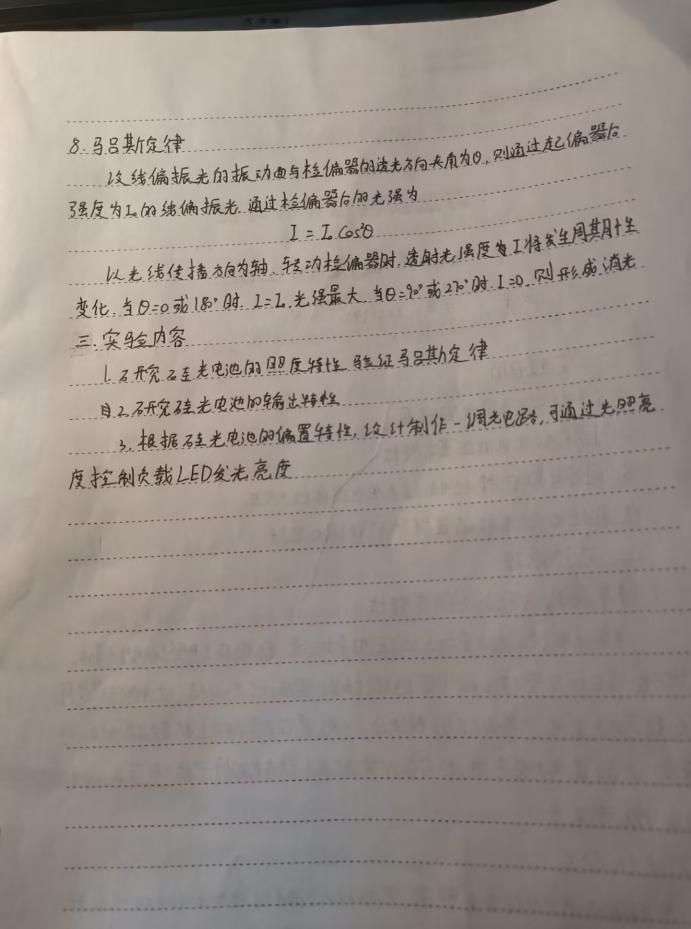 8. 马吕斯定律
设线偏振光的振动面与检偏器的透光方向夹角为θ, 则通过起偏器后
强度为I₀的线偏振光, 通过检偏器后的光强为
I = I₀ Cos²θ
以光线传播方向为轴, 转动检偏器时, 透射光强度为I将发生周期性
变化. 当θ=0或180°时. I=I₀ 光强最大. 当θ=90°或270°时. I=0. 则形成消光
三. 实验内容
1. 研究硅光电池的照度特性 验证马吕斯定律
2. 研究硅光电池的输出特性
3. 根据硅光电池的偏置特性, 设计制作一调光电路, 可通过光照亮
度控制负载LED发光亮度